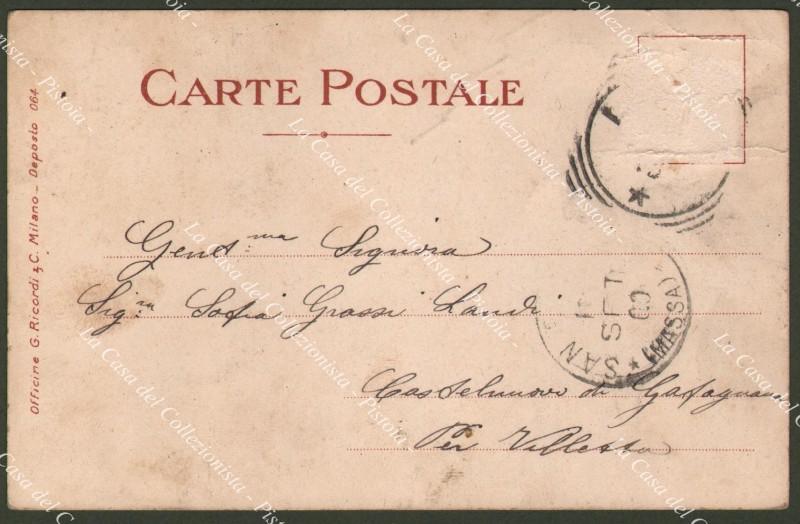 CARTE POSTALE
Officine G. Ricordi & C. Milano - Deposto 064
Gent.ma Signora
Sig.ra Sofia Grassi Landi
Castelnuovo di Garfagnana
Per Villetta
SAN
SETT
00
(MASSA)
La Casa del Collezionista - Pistoia -